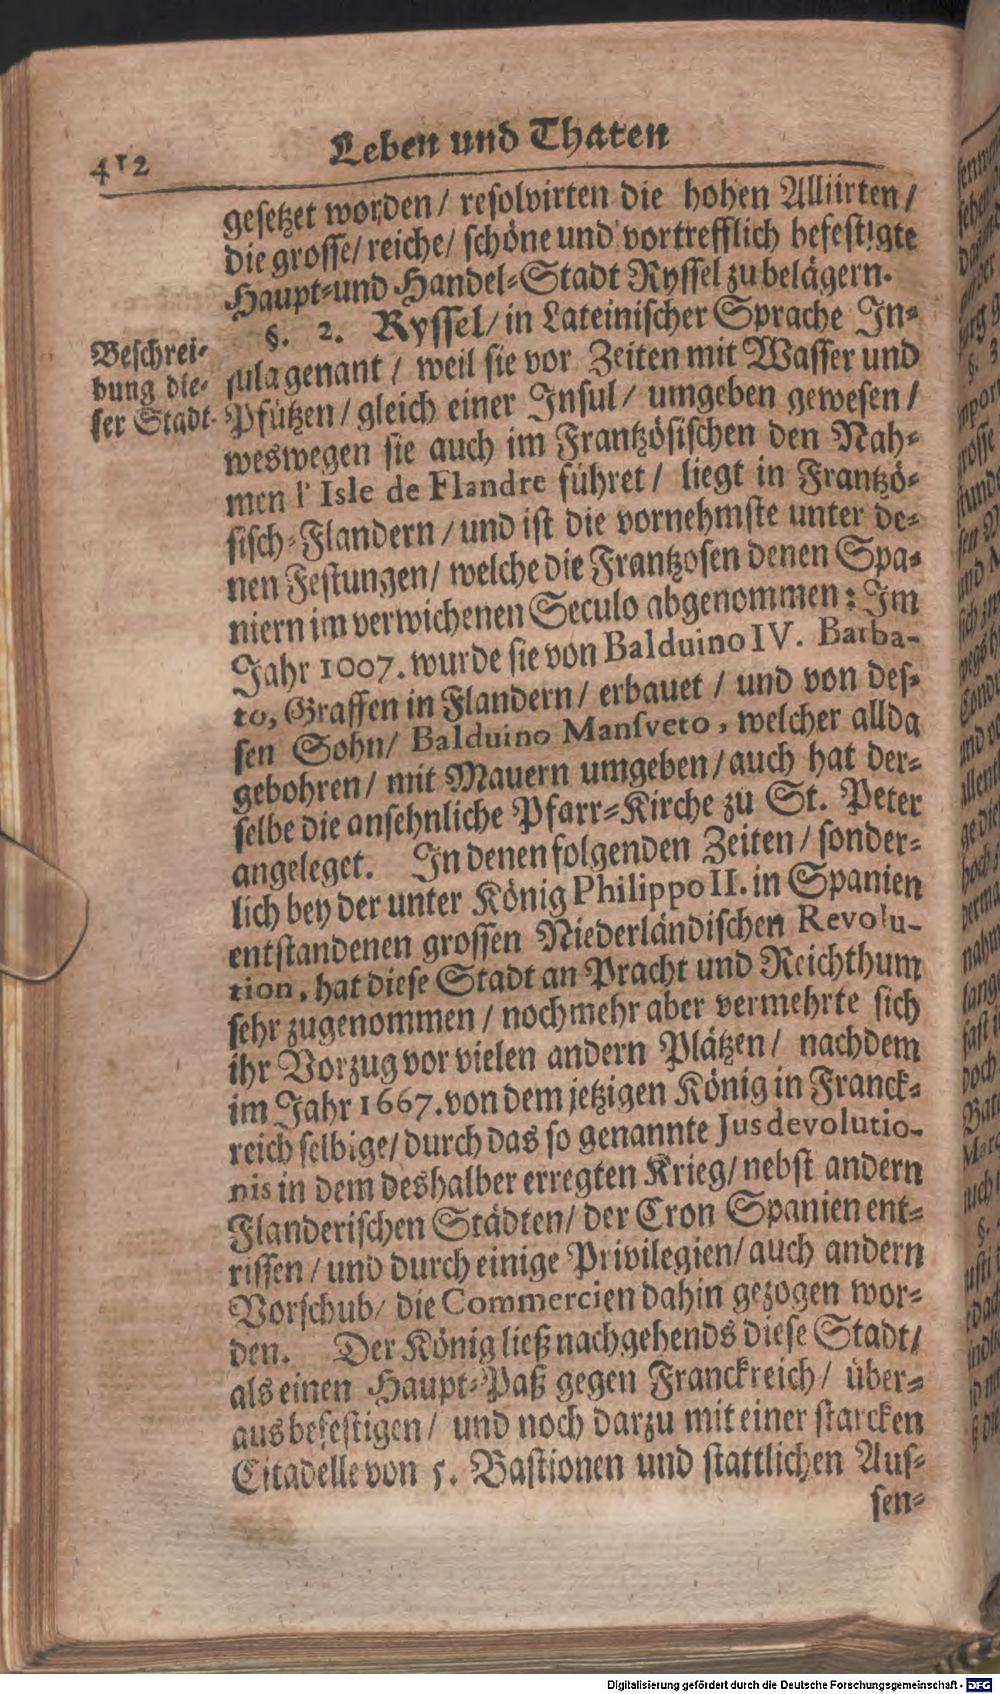 412
Leben und Thaten
gesetzet worden / resolvirten die hohen Alliirten /
die grosse / reiche / schöne und vortrefflich befestigte
Haupt-und Handel-Stadt Ryssel zu belägern.
Beschrei-
bung die-
ser Stadt.
§. 2. Ryssel / in Lateinischer Sprache In-
sula genant / weil sie vor Zeiten mit Wasser und
Pfützen / gleich einer Insul / umgeben gewesen /
weswegen sie auch im Frantzösischen den Nah-
men l' Isle de Flandre führet / liegt in Frantzö-
sisch-Flandern / und ist die vornehmste unter de-
nen Festungen / welche die Frantzosen denen Spa-
niern im verwichenen Seculo abgenommen: Im
Jahr 1007. wurde sie von Balduino IV. Barba-
to, Graffen in Flandern / erbauet / und von des-
sen Sohn / Balduino Mansveto, welcher allda
gebohren / mit Mauern umgeben / auch hat der-
selbe die ansehnliche Pfarr-Kirche zu St. Peter
angeleget. In denen folgenden Zeiten / sonder-
lich bey der unter König Philippo II. in Spanien
entstandenen grossen Niederländischen Revolu-
tion, hat diese Stadt an Pracht und Reichthum
sehr zugenommen / noch mehr aber vermehrte sich
ihr Vorzug vor vielen andern Plätzen / nachdem
im Jahr 1667. von dem jetzigen König in Franck-
reich selbige / durch das so genannte Jus devolutio-
nis in dem deshalber erregten Krieg / nebst andern
Flanderischen Städten / der Cron Spanien ent-
rissen / und durch einige Privilegien / auch andern
Vorschub / die Commercien dahin gezogen wor-
den. Der König ließ nachgehends diese Stadt /
als einen Haupt-Paß gegen Franckreich / über-
aus befestigen / und noch darzu mit einer starcken
Citadelle von 5. Bastionen und stattlichen Aus-
sen-
Digitalisierung gefördert durch die Deutsche Forschungsgemeinschaft - DFG